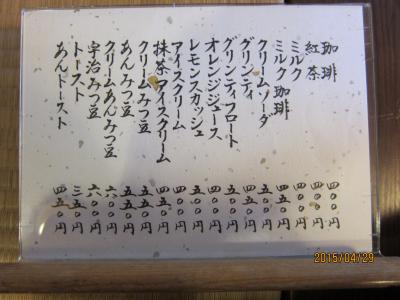 珈琲 四〇〇円
紅茶 四〇〇円
ミルク 四〇〇円
ミルク珈琲
クリームソーダ
グリンティ
グリンティフロート
オレンジジュース
レモンスカッシュ
アイスクリーム 四〇〇円
抹茶アイスクリーム 四五〇円
クリームみつ豆 五五〇円
あんみつ豆
クリームあんみつ豆 六〇〇円
宇治みつ豆 六〇〇円
トースト 三五〇円
あんトースト 四五〇円
2015/04/29